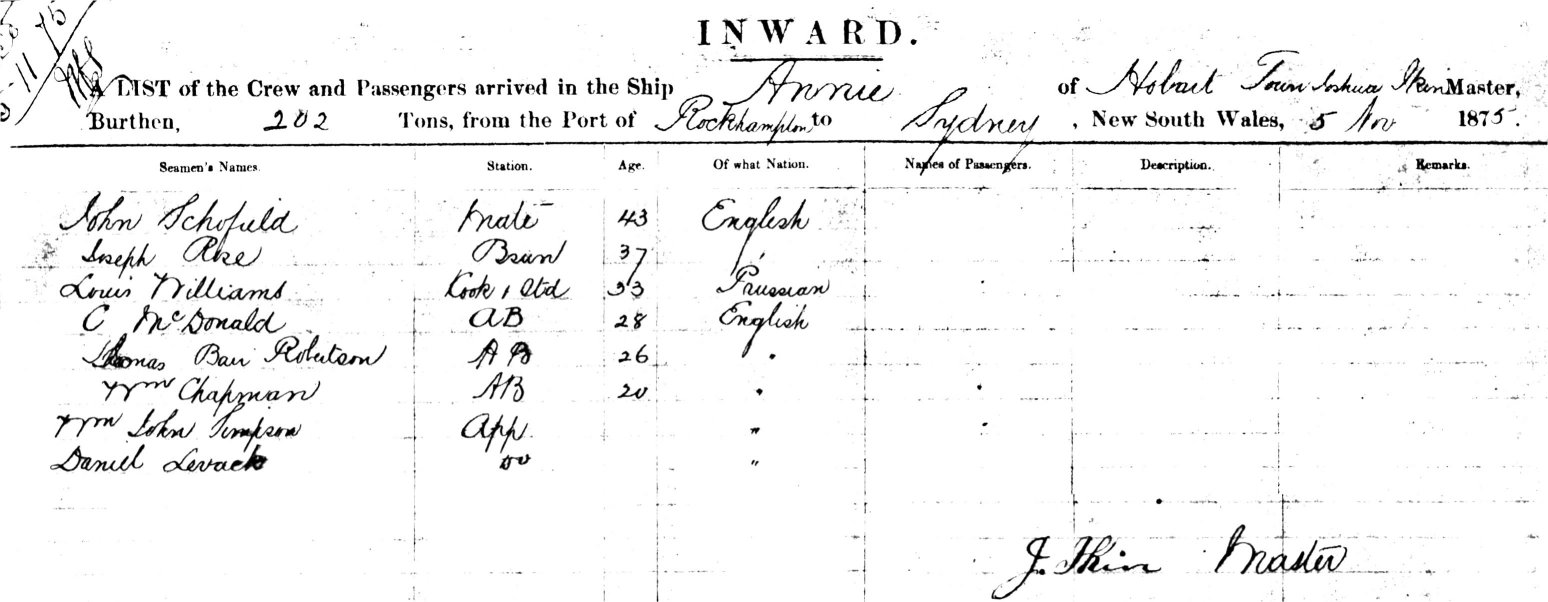 INWARD.
A LIST of the Crew and Passengers arrived in the Ship Annie of Hobart Town Joshua Ikin Master,
Burthen, 202 Tons, from the Port of Rockhampton to Sydney, New South Wales, 5 Nov 1875.
Seamen's Names. Station. Age. Of what Nation. Names of Passengers. Description. Remarks.
John Schofield Mate 43 English
Joseph Rose Bsun 37 "
Louis Williams Kook & Std 33 Prussian
C McDonald AB 28 English
Thomas Barr Robertson AB 26 "
Wm Chapman AB 20 "
Wm John Simpson App "
Daniel Levack do "
J. Ikin Master